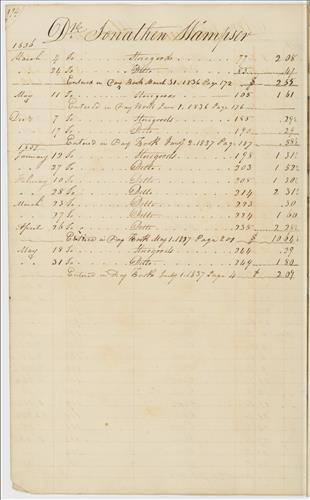 Dr. Jonathen Stampser
1836
March 4 To Storegoods 77 2.08
" 24 To Ditto 85 .47
Entered in Day Book March 31. 1836 Page 172 $ 2.55
May 11 To Storegoods 108 1.61
Entered in Day Book June 1. 1836 Page 176
Decr 7 To Storegoods 185 .29½
" 17 To Ditto 190 .29
Entered in Day Book Jany 2. 1837 Page 187 .58½
1837
January 12 To Storegoods 198 1.31½
" 27 To Ditto 203 1.52
February 10 To Ditto 208 1.30
" 28 To Ditto 214 2.31½
March 23 To Ditto 223 .30
" 27 To Ditto 224 1.60
April 26 To Ditto 235
Entered in Day Book May 1. 1837 Page 201 $ 10.64
May 18 To Storegoods 244 .29
" 31 To Ditto 249 1.80
Entered in Day Book July 1. 1837 Page 4 $ 2.09